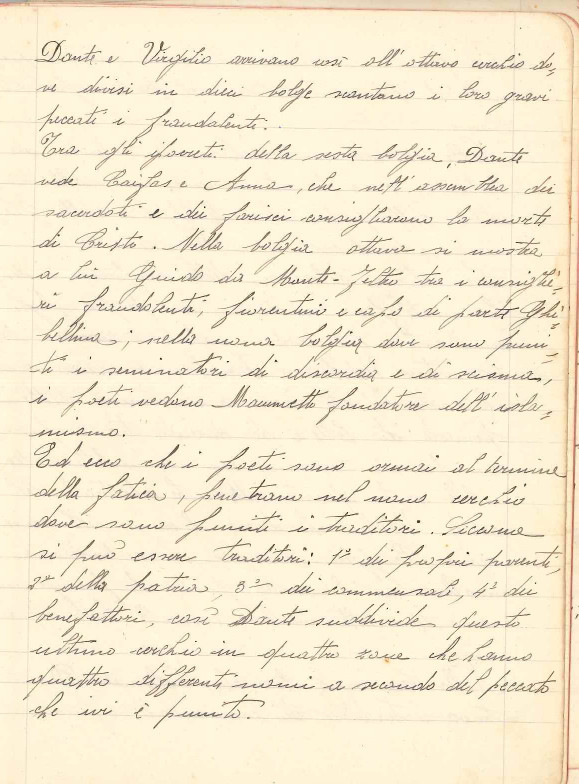 Dante e Virgilio arrivano così all'ottavo cerchio do=
ve divisi in dieci bolge scontano i loro gravi
peccati i fraudolenti..
Tra gli ipocriti della sesta bolgia, Dante
vede Caifas e Anna, che nell'assemblea dei
sacerdoti e dei farisei consigliarono la morte
di Cristo. Nella bolgia ottava si mostra
a lui Guido da Monte-Feltro tra i consiglie=
ri fraudolenti, fiorentini e capo di parte Ghi=
bellina; nella nona bolgia dove sono puni=
ti i seminatori di discordia e di scisma,
i poeti vedono Maometto fondatore dell'isla=
mismo.
Ed ecco che i poeti sono ormai al termine
della fatica, penetrano nel nono cerchio
dove sono puniti i traditori. Siccome
si può essere traditori: 1º dei propri parenti,
2º della patria, 3º dei commensali, 4º dei
benefattori, così Dante suddivide questo
ultimo cerchio in quattro zone che hanno
quattro differenti nomi a secondo del peccato
che ivi è punito.